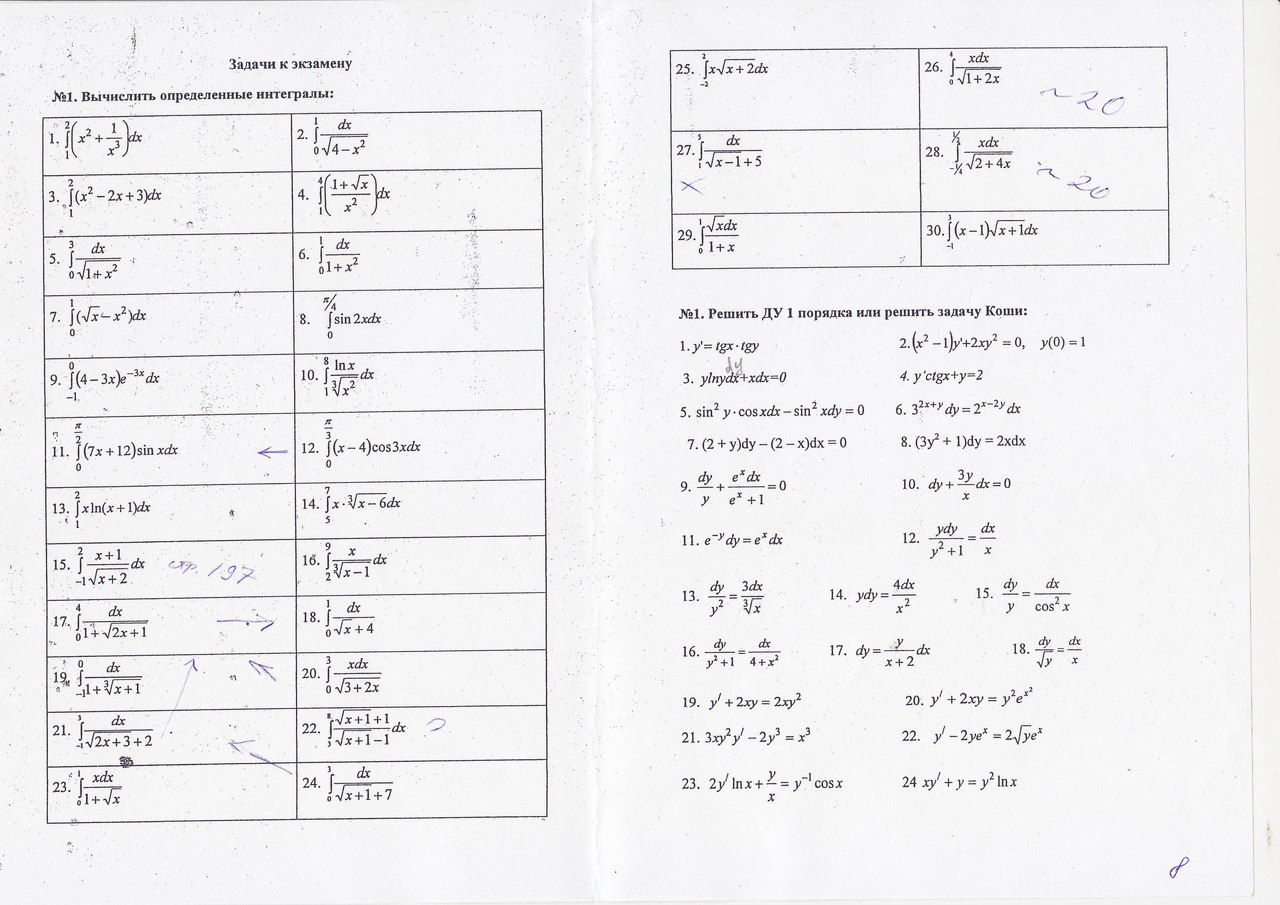 Задачи к экзамену
№1. Вычислить определенные интегралы:
1. ∫₁² (x² + 1/x³)dx
2. ∫₀¹ dx/√(4 − x²)
3. ∫₁² (x² − 2x + 3)dx
4. ∫₁⁴ ((1 + √x)/x²)dx
5. ∫₀³ dx/√(1 + x²)
6. ∫₀¹ dx/(1 + x²)
7. ∫₀¹ (√x − x²)dx
8. ∫₀^(π/4) sin 2xdx
9. ∫₋₁⁰ (4 − 3x)e^(−3x) dx
10. ∫₁⁸ ln x/∛(x²) dx
11. ∫₀^(π/2) (7x + 12) sin xdx ←
12. ∫₀^(π/3) (x − 4) cos 3xdx
13. ∫₁² x ln(x + 1)dx
14. ∫₅⁷ x · ∛(x − 6)dx
15. ∫₋₁² (x + 1)/√(x + 2) dx стр. 197
16. ∫₂⁹ x/∛(x − 1) dx
17. ∫₀⁴ dx/(1 + √(2x + 1)) →
18. ∫₀¹ dx/(√x + 4)
19. ∫₋₁⁰ dx/(1 + ∛(x + 1))
20. ∫₀³ xdx/√(3 + 2x)
21. ∫₋₁³ dx/(√(2x + 3) + 2)
22. ∫₃⁸ (√(x + 1) + 1)/(√(x + 1) − 1) dx
23. ∫₀¹ xdx/(1 + √x)
24. ∫₀³ dx/(√(x + 1) + 7)
25. ∫₋₂² x√(x + 2)dx
26. ∫₀⁴ xdx/√(1 + 2x) ~ 20
27. ∫₁⁵ dx/(√(x − 1) + 5) x
28. ∫₋₁/₄^(1/2) xdx/√(2 + 4x) ~ 20
29. ∫₀¹ √x dx/(1 + x)
30. ∫₋₁³ (x − 1)√(x + 1)dx
№1. Решить ДУ 1 порядка или решить задачу Коши:
1. y' = tgx · tgy
2. (x² − 1)y' + 2xy² = 0, y(0) = 1
dy
3. ylnydx+xdx=0
4. y'ctgx+y=2
5. sin² y · cos xdx − sin² xdy = 0
6. 3^(2x+y) dy = 2^(x−2y) dx
7. (2 + y)dy – (2 – x)dx = 0
8. (3y² + 1)dy = 2xdx
9. dy/y + e^x dx/(e^x + 1) = 0
10. dy + 3y/x dx = 0
11. e^(−y) dy = e^x dx
12. ydy/(y² + 1) = dx/x
13. dy/y² = 3dx/∛x
14. ydy = 4dx/x²
15. dy/y = dx/cos² x
16. dy/(y² + 1) = dx/(4 + x²)
17. dy = y/(x + 2) dx
18. dy/√y = dx/x
19. y′ + 2xy = 2xy²
20. y′ + 2xy = y²e^(x²)
21. 3xy²y′ − 2y³ = x³
22. y′ − 2ye^x = 2√y e^x
23. 2y′ ln x + y/x = y⁻¹ cos x
24 xy′ + y = y² ln x
8